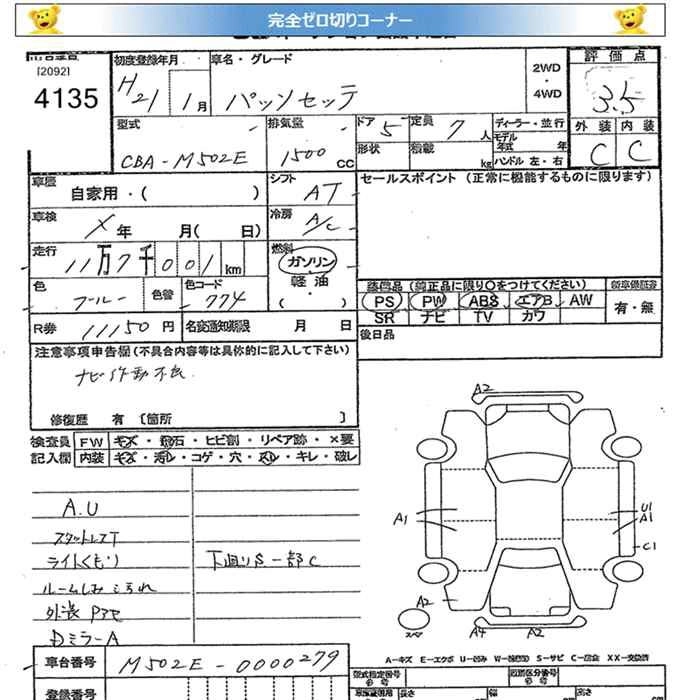 完全ゼロ切りコーナー
[2092]
4135
初度登録年月
H21 1月
車名・グレード
パッソセッテ
2WD
・
4WD
評価点
3.5
外装 内装
C C
型式
CBA-M502E
排気量
1500 CC
ドア 5
形状
定員 7人
積載 kg
ディーラー・並行
モデル年式 年
ハンドル 左・右
車歴
自家用・( )
シフト
AT
セールスポイント (正常に機能するものに限ります)
車検
X年 月( 日)
冷房
A/C
走行
11万7千001km
燃料
ガソリン
軽油
( )
色
ブルー
色替
色コード
774
装備品 (純正品に限り〇をつけてください)
PS PW ABS エアB AW
SR ナビ TV カワ
新車保証書
有・無
R券 11150円
名変通知期限 月 日
後日品
注意事項申告欄(不具合内容等は具体的に記入して下さい)
ナビ作動不良
修復歴 有 [箇所 ]
検査員
記入欄
FW キズ・飛石・ヒビ割・リペア跡・X要
内装 キズ・汚レ・コゲ・穴・スレ・キレ・破レ
A.U
スタットレスT
ライトくもり
ルームしみ よごれ
外装 Pアセ
Dミラー A
下廻りS 一部C
A2
A1
U1
A1
C1
A2
A4 A2
スペア
A-キズ E-エクボ U-凹み W-波凹凸 S-サビ C-腐食 XX-交換済
車台番号 M502E-0000279
登録番号
型式指定番号
類別区分番号
長さ
幅
高さ